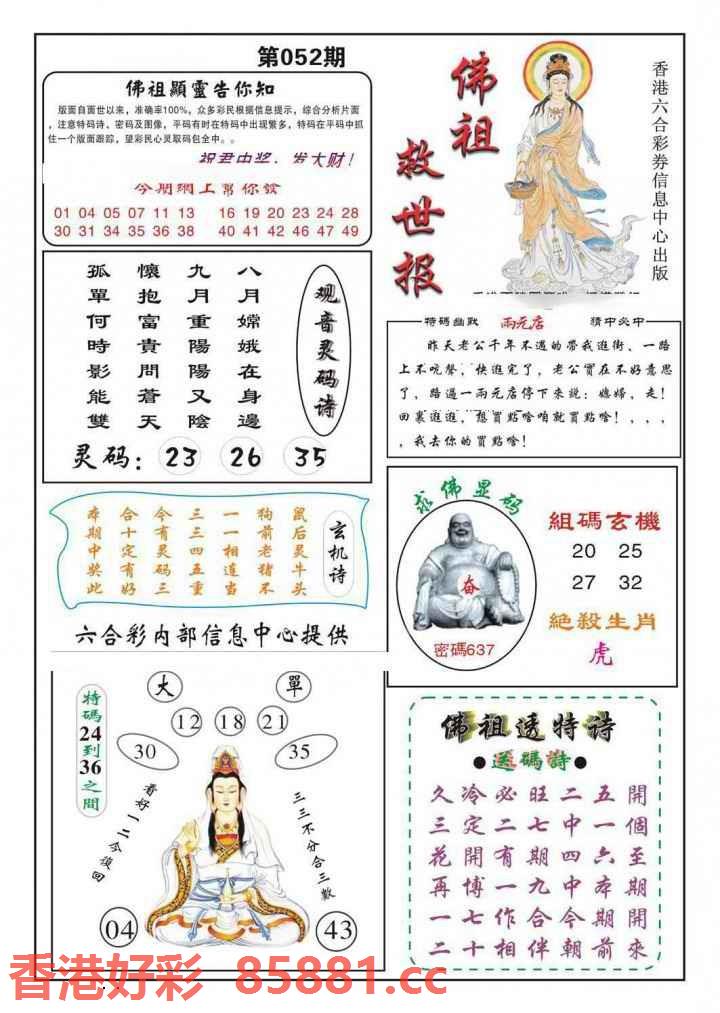 第052期
佛祖顯靈告你知
版面自面世以来，准确率100%，众多彩民根据信息提示，综合分析片面
，注意特码诗、密码及图像，平码有时在特码中出现繁多，特码在平码中抓
住一个版面跟踪，望彩民心灵取码包全中。。
祝君中奖，发大财！
今期網上幫你發
01 04 05 07 11 13 16 19 20 23 24 28
30 31 34 35 36 38 40 41 42 46 47 49
佛祖
救世报
香港六合彩券信息中心出版
观音灵码诗
八月嫦娥在身邊
九月重陽陽又陰
懷抱富貴問蒼天
孤單何時影能雙
灵码：23 26 35
特碼幽默 兩元店 猜中必中
昨天老公千年不遇的帶我逛街、一路
上不吭聲，快逛完了，老公實在不好意思
了，路過一兩元店停下來說：媳婦，走！
回裏逛逛，想買點啥咱就買點啥！，，，
，我去你的買點啥！
玄机诗
鼠后灵牛头
狗前老猪不
一一相連当
三三四五重
今有灵码三
合十定有好
本期中奖此
六合彩内部信息中心提供
求佛显码
奋
密碼637
組碼玄機
20 25
27 32
絕殺生肖
虎
特碼24到36之間
大 單
12 18 21
30 35
看好一二今復回
三三不分合三數
04 43
佛祖透特诗
●送碼詩●
久冷必旺二五開
三定二七中一個
花開有期四六至
再博一九中本期
一七作合今期開
二十相伴朝前來
香港好彩 85881.cc